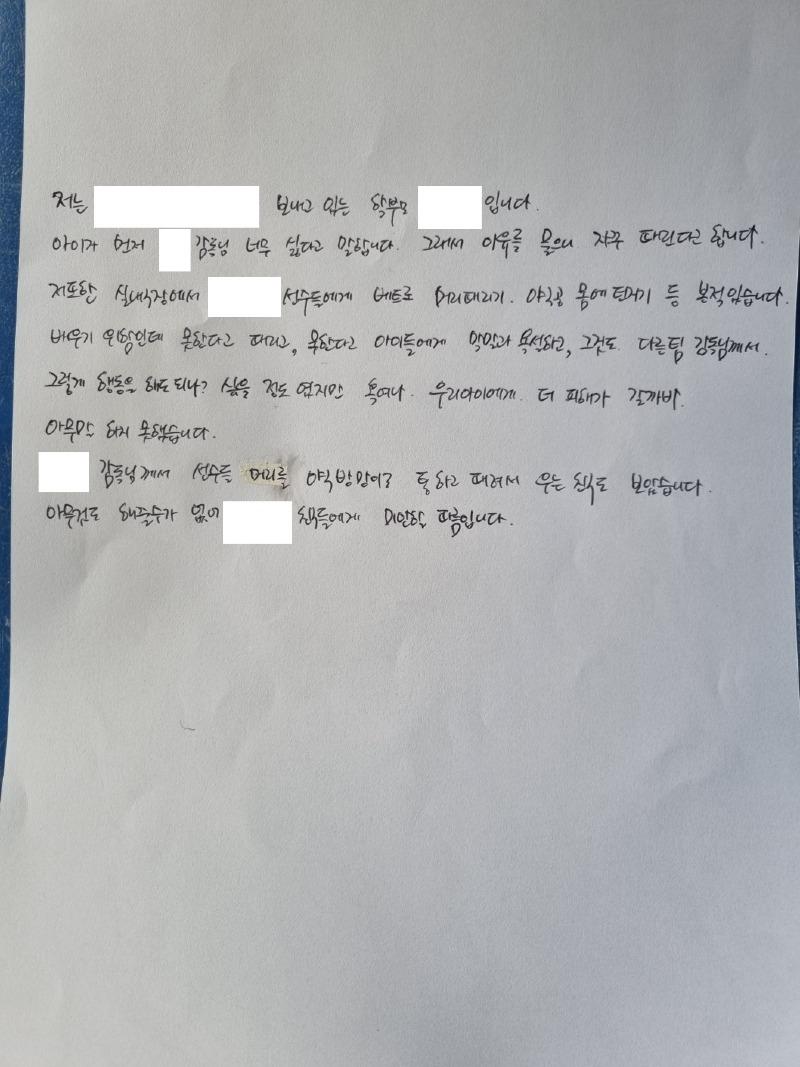 저는 보내고 있는 학부모 입니다.
아이가 먼저 감독님 너무 싫다고 말합니다. 그래서 이유를 물으니 자꾸 때린다고 합니다.
저또한 실내구장에서 선수들에게 베트로 머리때리기. 야구공 몸에 던지기 등 본적있습니다.
배우기 위함인데 못한다고 때리고, 못한다고 아이들에게 막말과 욕설하고, 그것도 다른팀 감독님께서.
그렇게 행동을 해도 되나? 싶을 정도 였지만 혹여나. 우리아이에게. 더 피해가 갈까바.
아무말 하지 못했습니다.
감독님께서 선수들 머리를 야구방망이로 통하고 때려서 우는 친구도 보았습니다.
아무것도 해줄수가 없어 친구들에게 미안할 따름입니다.